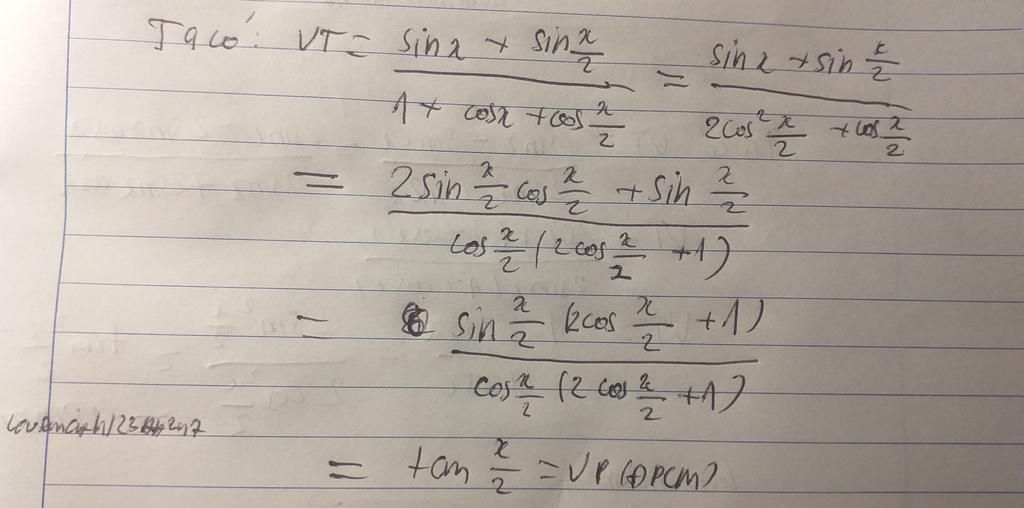 Ta có: VT = (sinx + sin x/2)/(1 + cosx + cos x/2) = (sinx + sin x/2)/(2cos² x/2 + cos x/2)
= (2sin x/2 cos x/2 + sin x/2)/(cos x/2 (2cos x/2 + 1))
= (sin x/2 (2cos x/2 + 1))/(cos x/2 (2cos x/2 + 1))
= tan x/2 = VP (ĐPCM)